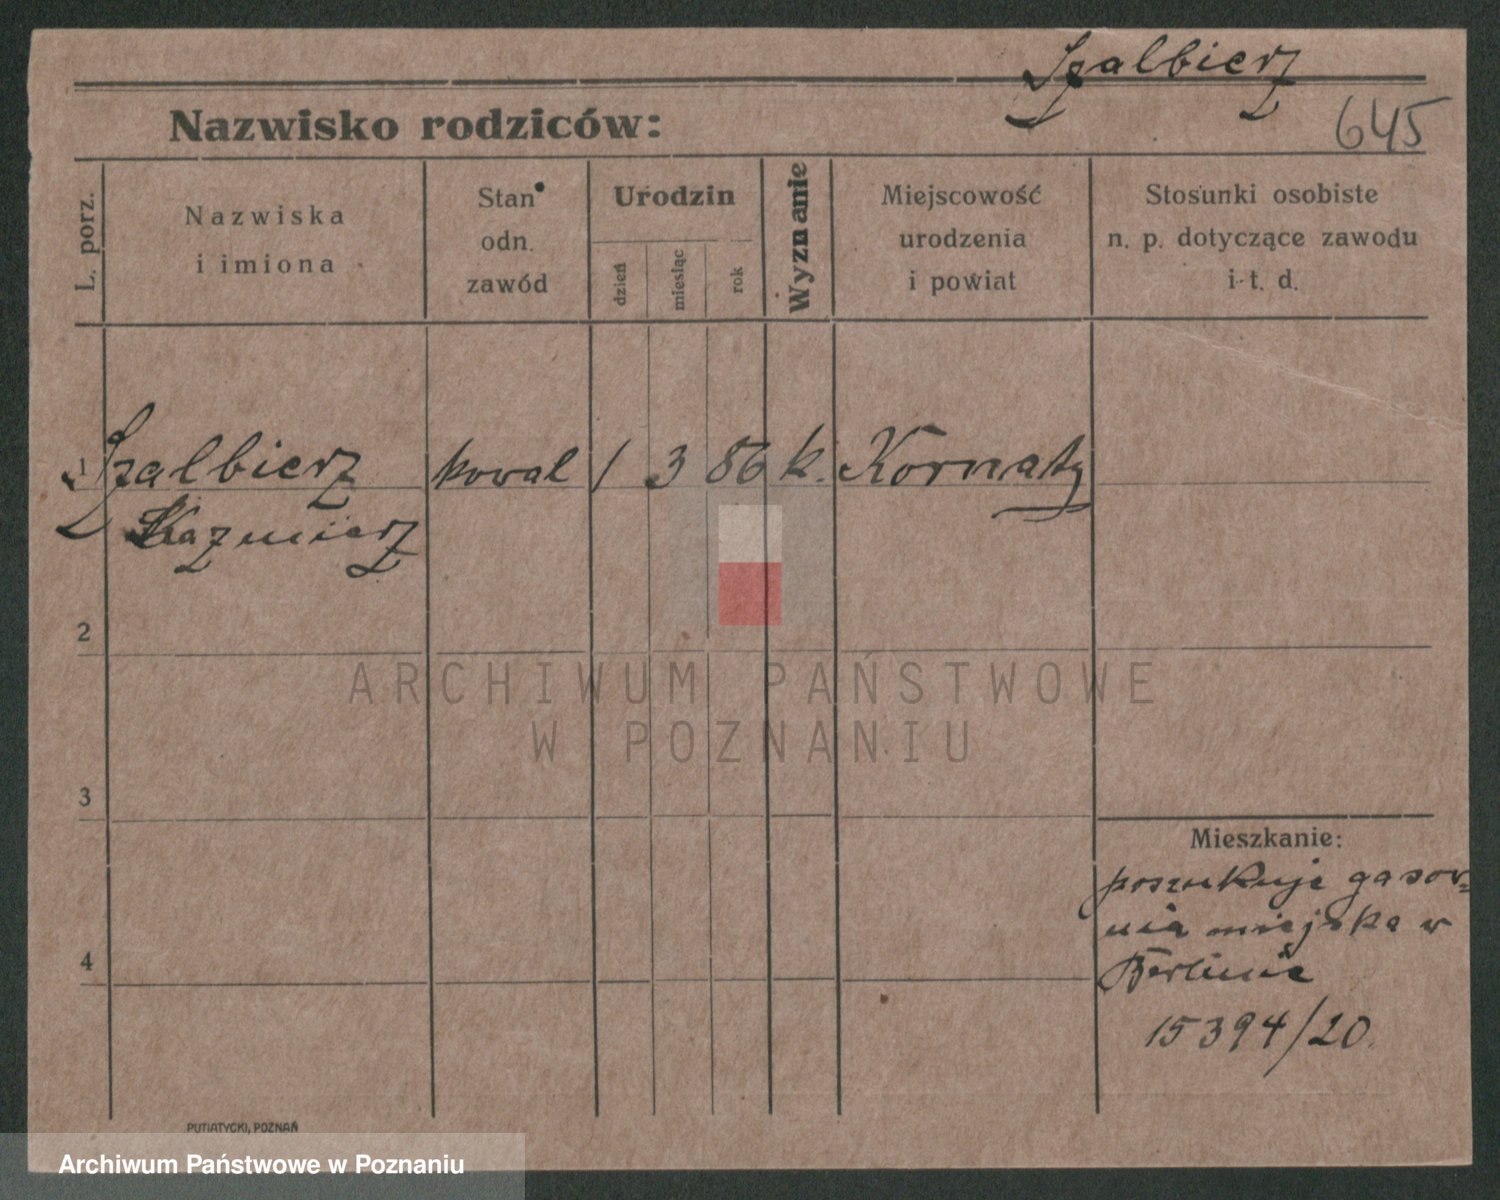 Szalbierz
645
Nazwisko rodziców:
L. porz.
Nazwiska
i imiona
Stan
odn.
zawód
Urodzin
dzień
miesiąc
rok
Wyznanie
Miejscowość
urodzenia
i powiat
Stosunki osobiste
n. p. dotyczące zawodu
i t. d.
1 Szalbierz kowal 1 3 86 k. Kornaty
Kazmierz
2
ARCHIWUM PAŃSTWOWE
W POZNANIU
3
Mieszkanie:
poszukuje gasow-
nia miejska w
4
Berlinie
15394/20
PUTIATYCKI, POZNAŃ
Archiwum Państwowe w Poznaniu